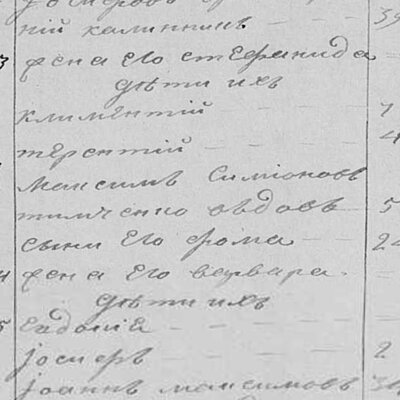 ній калининъ 39
3 жена его стефанида
дѣти ихъ
климентій 7
терентій 4
Максимъ Симіоновъ
тимченко вдовъ 5
сынъ его фома 24
4 жена его варвара
дѣти ихъ
5 Евдокія
Іосифъ 2
Іоаннъ максимовъ